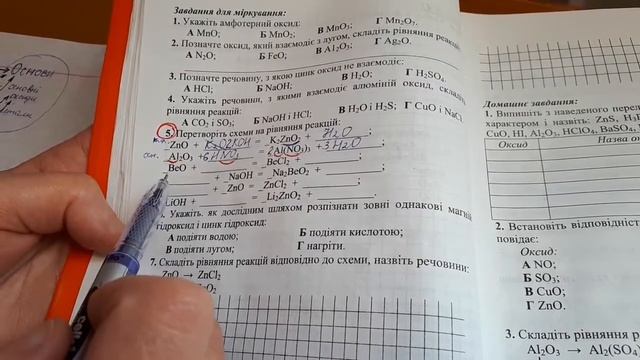 Основи
основні
Завдання для міркування:
1. Укажіть амфотерний оксид:
А MnO; Б MnO₂; В MnO₃; Г Mn₂O₇.
2. Позначте оксид, який взаємодіє з лугом, складіть рівняння реакції
А N₂O; Б FeO; В Al₂O₃; Г Ag₂O.
3. Позначте речовину, з якою цинк оксид не взаємодіє:
А HCl; Б NaOH; В H₂O; Г H₂SO₄.
4. Укажіть речовини, з якими взаємодіє алюміній оксид, складіть
рівняння реакцій:
А CO₂ і SO₃; Б NaOH і HCl; В H₂O і H₂S; Г CuO і NaCl
5. Перетворіть схеми на рівняння реакцій:
ZnO + 2KOH = K₂ZnO₂ + H₂O;
Al₂O₃ + 6HNO₃ = 2Al(NO₃)₃ + 3H₂O
BeO + = BeCl₂ + ;
+ NaOH = Na₂BeO₂ + ;
+ ZnO = ZnCl₂ + ;
LiOH + = Li₂ZnO₂ + ;
6. Укажіть, як дослідним шляхом розпізнати зовні однакові магній
гідроксид і цинк гідроксид:
А подіяти водою; Б подіяти кислотою;
В подіяти лугом; Г нагріти.
7. Складіть рівняння реакцій відповідно до схеми, назвіть речовини:
ZnO → ZnCl₂
Домашнє завдання:
1. Випишіть з наведеного перел
характером і назвіть: ZnS, H₃P
CuO, HI, Al₂O₃, HClO₄, BaSO₄,
Оксид Назва о
2. Встановіть відповідніст
повідає:
Оксид:
А NO;
Б SO₃;
В CuO;
Г ZnO.
3. Складіть рівняння р
Al₂O₃ → Al₂(SO₄